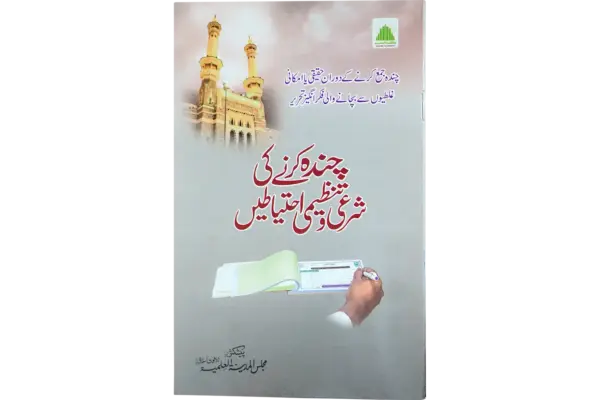 چندہ جمع کرنے کے دوران حقیقی یا امکانی
غلطیوں سے بچانے والی فکر انگیز تحریر
چندہ کرنے کی
شرعی و تنظیمی احتیاطیں
پیشکش
مجلس المدینۃ العلمیۃ